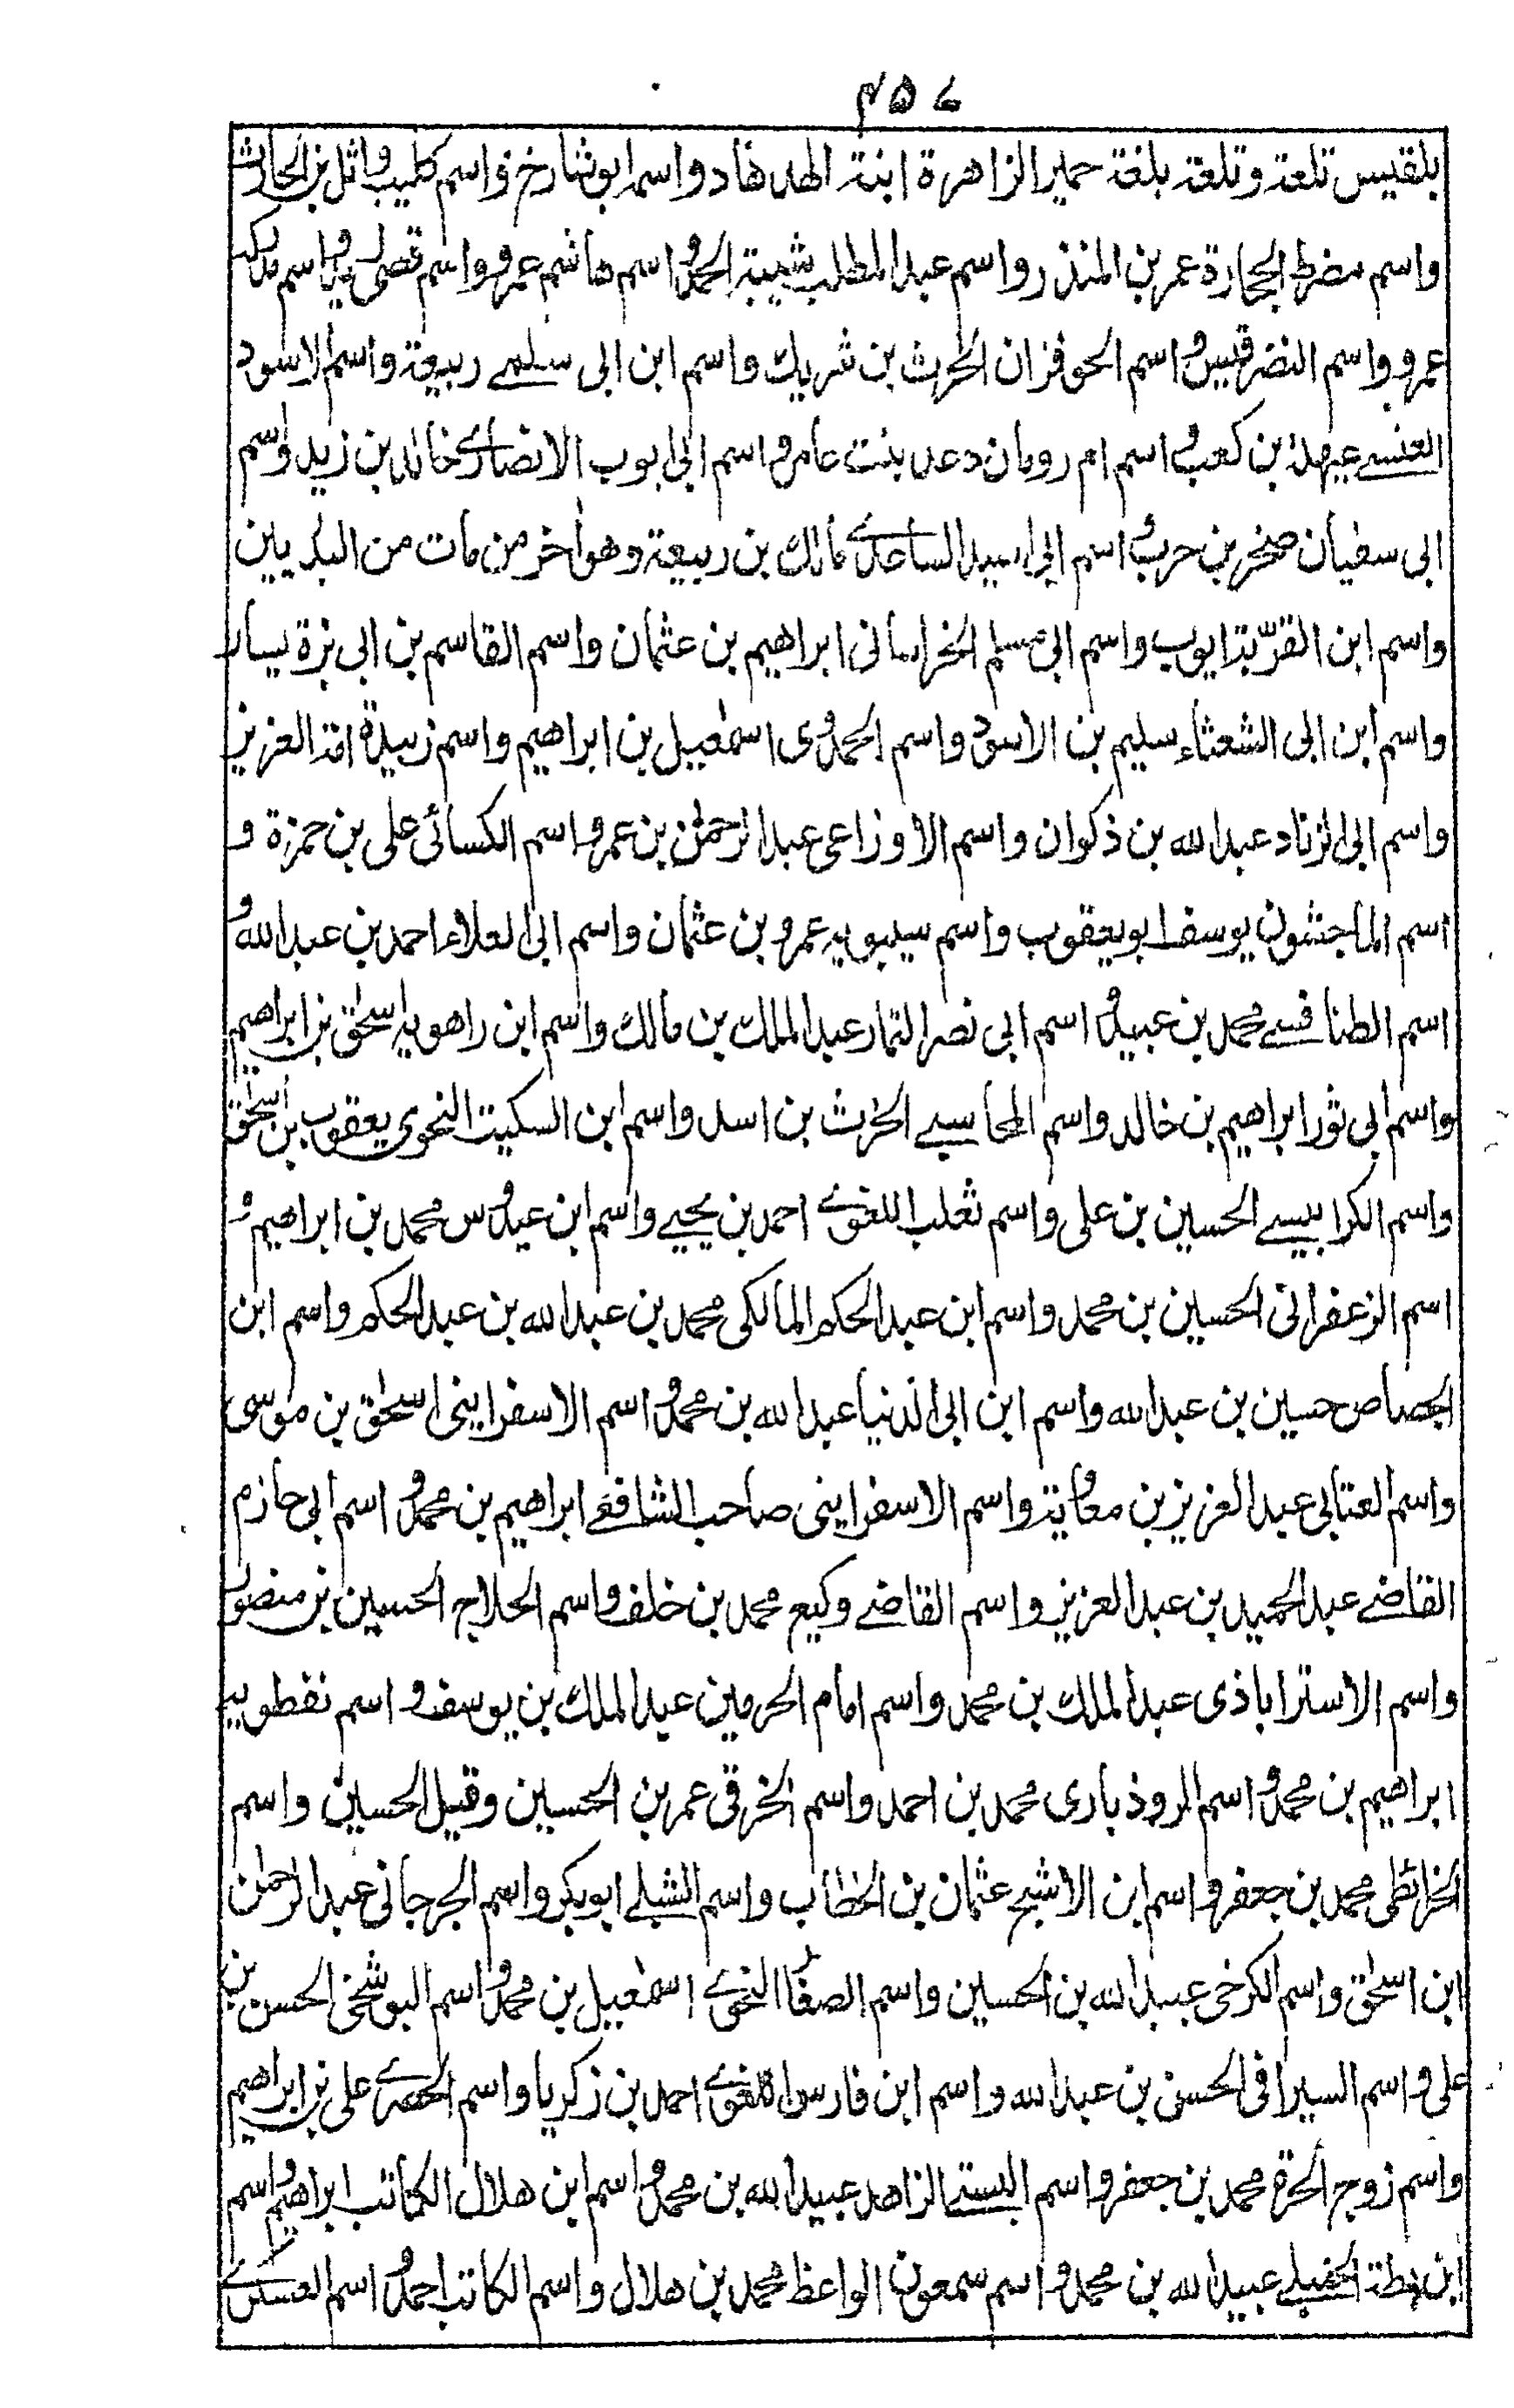 ۴۵۷
بلقيس تلعة وتلقة بلغة حمير الزاهرة ابنة الهدهاد واسم ابو شارخ واسم كليب وائل بن الحارث
واسم مضرط الحجارة عمر بن المنذر واسم عبد المطلب شيبة الحمد واسم هاشم عمرو واسم قصى زيد واسم مدركة
عمرو واسم النضر قيس واسم الحوفزان الحرث بن شريك واسم ابن ابى سلمى ربيعة واسم الاسود
العنسى عيهلة بن كعب واسم ام رومان دعد بنت عامر واسم ابى ايوب الانصارى خالد بن زيد واسم
ابى سفيان صخر بن حرب واسم ابى اسيد الساعدى مالك بن ربيعة وهو اخر من مات من البدريين
واسم ابن القرّية ايوب واسم ابى مسلم الخراسانى ابراهيم بن عثمان واسم القاسم بن ابى بزة يسار
واسم ابن ابى الشعثاء سليم بن الاسود واسم الحمدوى اسمٰعيل بن ابراهيم واسم زبيدة امة العزيز
واسم ابى الزناد عبد الله بن ذكوان واسم الاوزاعى عبد الرحمٰن بن عمرو واسم الكسائى على بن حمزة و
اسم الماجشون يوسف ابو يعقوب واسم سيبويه عمرو بن عثمان واسم ابى العلاء احمد بن عبد الله و
اسم الطنافسى محمد بن عبيد و اسم ابى نصر التمار عبد الملك بن مالك واسم ابن راهويه اسحٰق بن ابراهيم
واسم ابى ثور ابراهيم بن خالد واسم المحاسبى الحرث بن اسد واسم ابن السكيت النحوى يعقوب بن اسحٰق
واسم الكرابيسى الحسين بن على واسم ثعلب اللغوى احمد بن يحيى واسم ابن عبدوس محمد بن ابراهيم و
اسم الزعفرانى الحسين بن محمد واسم ابن عبد الحكم المالكى محمد بن عبد الله بن عبد الحكم واسم ابن
الجصاص حسين بن عبد الله واسم ابن ابى الدنيا عبد الله بن محمد واسم الاسفراينى اسحٰق بن موسى
واسم العتابى عبد العزيز بن معاوية واسم الاسفراينى صاحب الشافعى ابراهيم بن محمد و اسم ابى حازم
القاضى عبد الحميد بن عبد العزيز واسم القاضى وكيع محمد بن خلف واسم الحلاج الحسين بن منصور
واسم الاستراباذى عبد الملك بن محمد واسم امام الحرمين عبد الملك بن يوسف و اسم نفطويه
ابراهيم بن محمد و اسم الروذبارى محمد بن احمد واسم الخرقى عمر بن الحسين وقيل الحسين واسم
الخرائطى محمد بن جعفر واسم ابن الاشج عثمان بن الخطاب واسم الشبلى ابو بكر واسم الجرجانى عبد الرحمٰن
ابن اسحٰق واسم الكرخى عبيد الله بن الحسين واسم الصفار النحوى اسمٰعيل بن محمد و اسم البوشنجى الحسن بن
على و اسم السيرافى الحسن بن عبد الله واسم ابن فارس اللغوى احمد بن زكريا واسم الحصرى على بن ابراهيم
واسم زوج الحرة محمد بن جعفر واسم البستى الزاهد عبيد الله بن محمد و اسم ابن هلال الكاتب ابراهيم واسم
ابن بطة الحنبلى عبيد الله بن محمد و اسم سمعون الواعظ محمد بن هلال واسم الكاتب احمد و اسم العسكرى